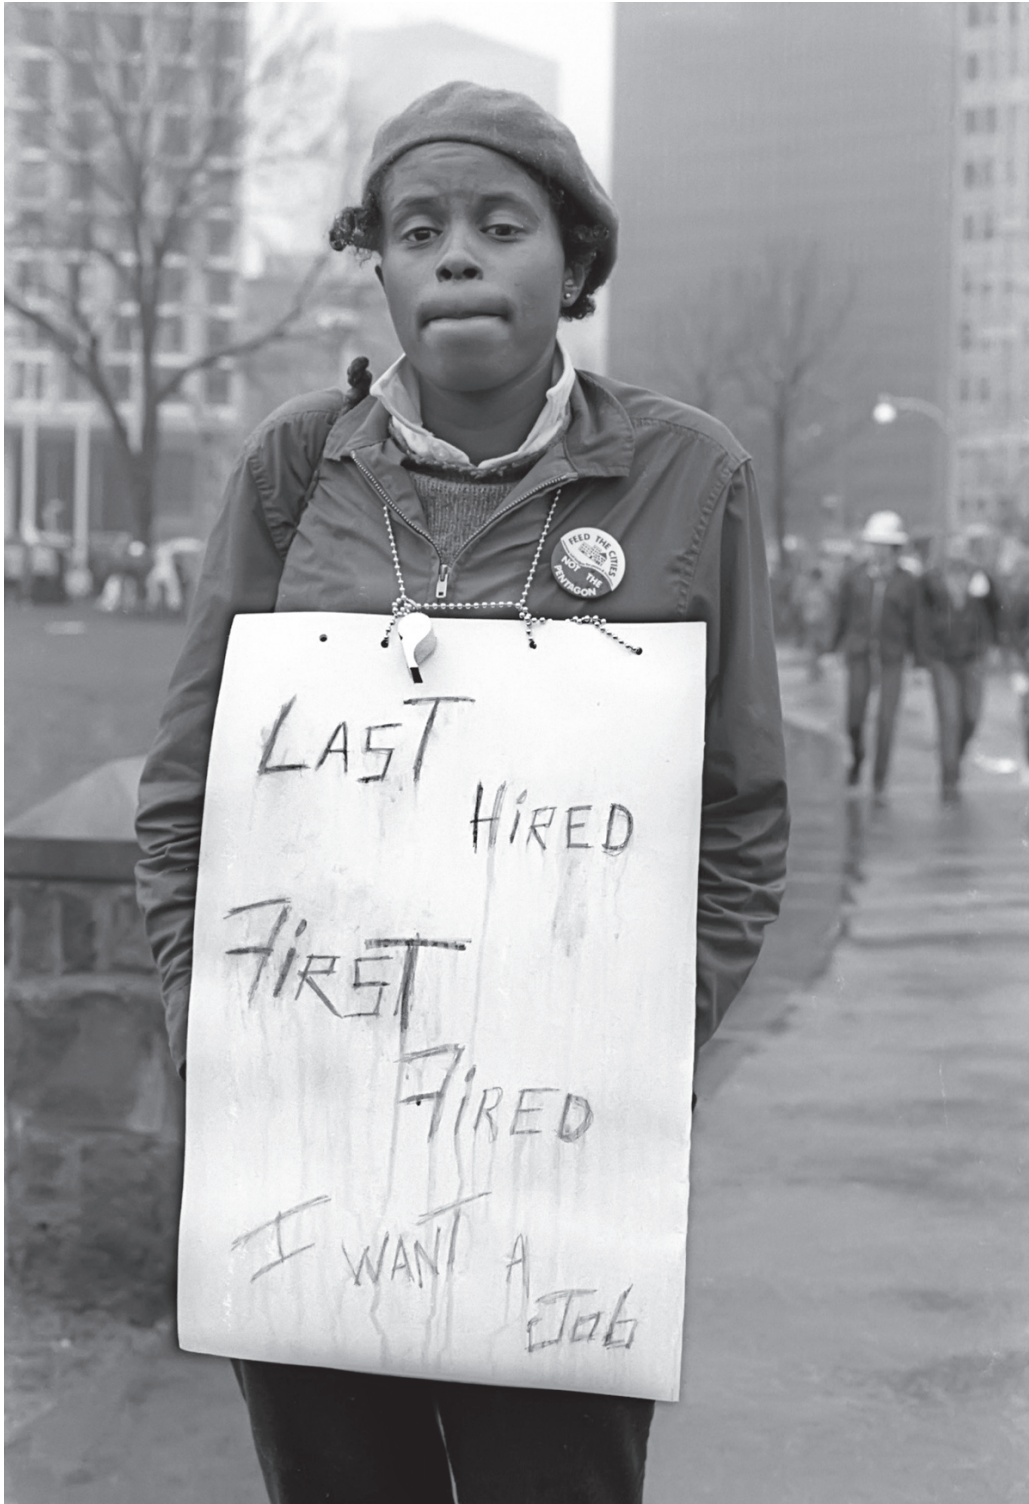 FEED THE CITIES
NOT THE
PENTAGON
LAST
HiRED
FiRST
FiRED
I WANT A
Job